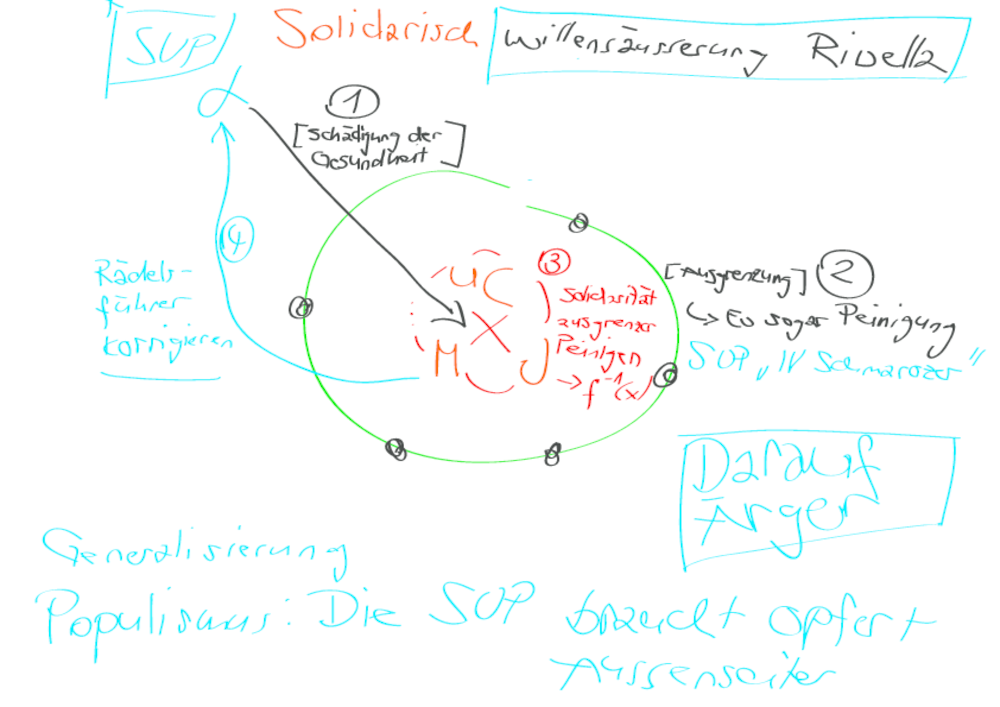 SUP
Solidarisch
Willensäusserung Rivella
α
1
[Schädigung der
Gesundheit]
4
Rädels-
führer
korrigieren
ÜC
X
M J
3
Solidarität
ausgrenzer
Peinigen
→ f⁻¹(x)
[Ausgrenzung] 2
↳ Ev sogar Peinigung
SUP „IV Schmarozer"
Darauf
Ärger
Generalisierung
Populismus: Die SUP braucht opfer +
Aussenseiter